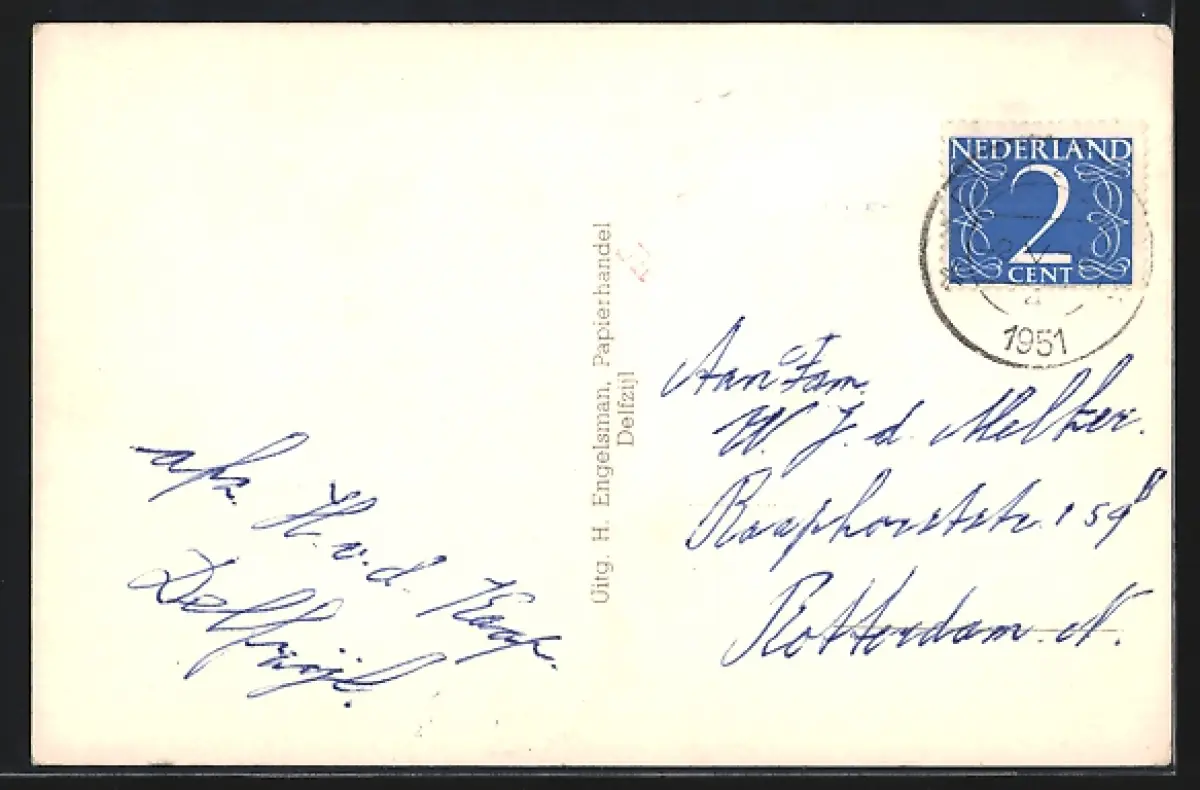 NEDERLAND
2
CENT
1951
Uitg. H. Engelsman, Papierhandel
Delfzijl
Aan Fam.
W. J. d. Melker.
Raaphorststr. 159
Rotterdam. N.
afz.
H. v. d. Kaap.
Delfzijl.